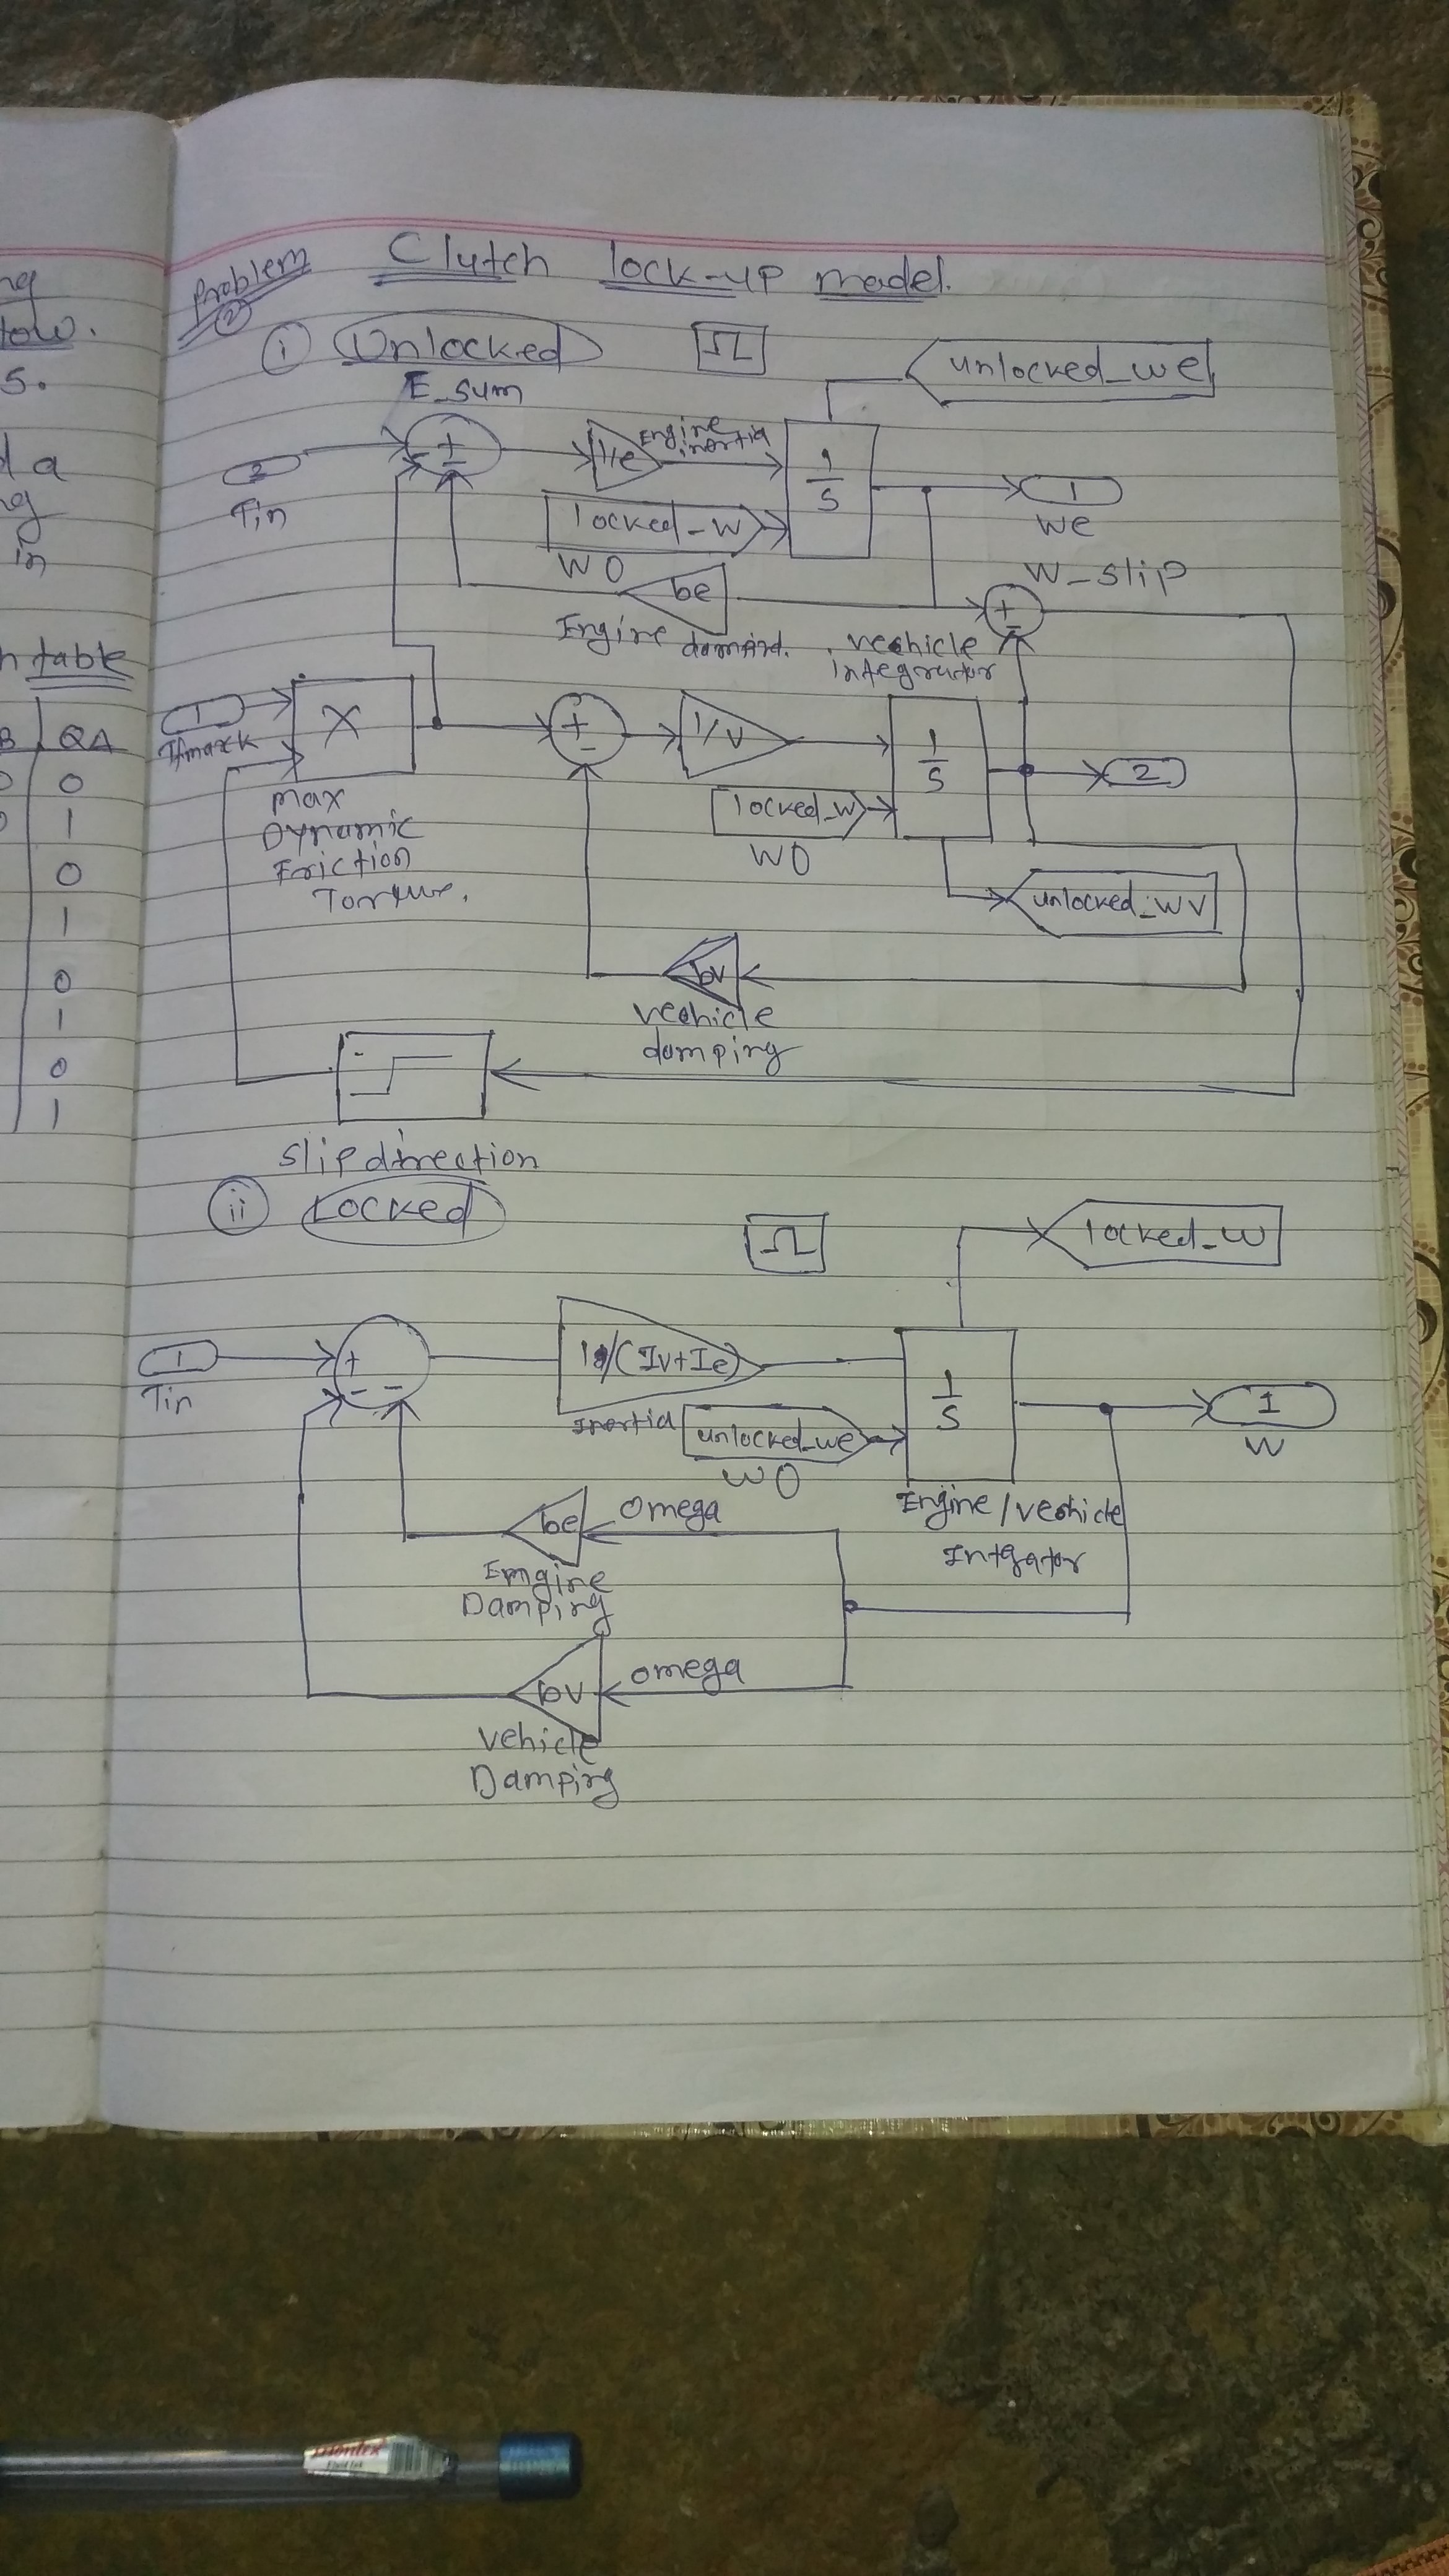 ng
low.
s.
d a
ng
in
h table
B QA
0 0
0 1
0
1
0
1
0
1
Problem
2
Clutch lock-up model.
i Unlocked
unlocked_we
E_sum
2
Tin
+
- -
1/e
Engine
inertia
1/s
1
we
locked_w
W0
be
W_slip
+
-
Engine
vechicle
integrator
1
Tfmaxk
X
+
-
1/v
1/s
2
locked_w
W0
max
Dynamic
Friction
Torque.
unlocked_wv
bv
vechicle
damping
slip direction
ii Locked
locked_w
1
Tin
+
- -
1/(Iv+Ie)
Inertia
unlocked_we
W0
1/s
1
W
Engine/vechicle
Intgator
be
omega
Emgine
Damping
bv
omega
Vehicle
Damping